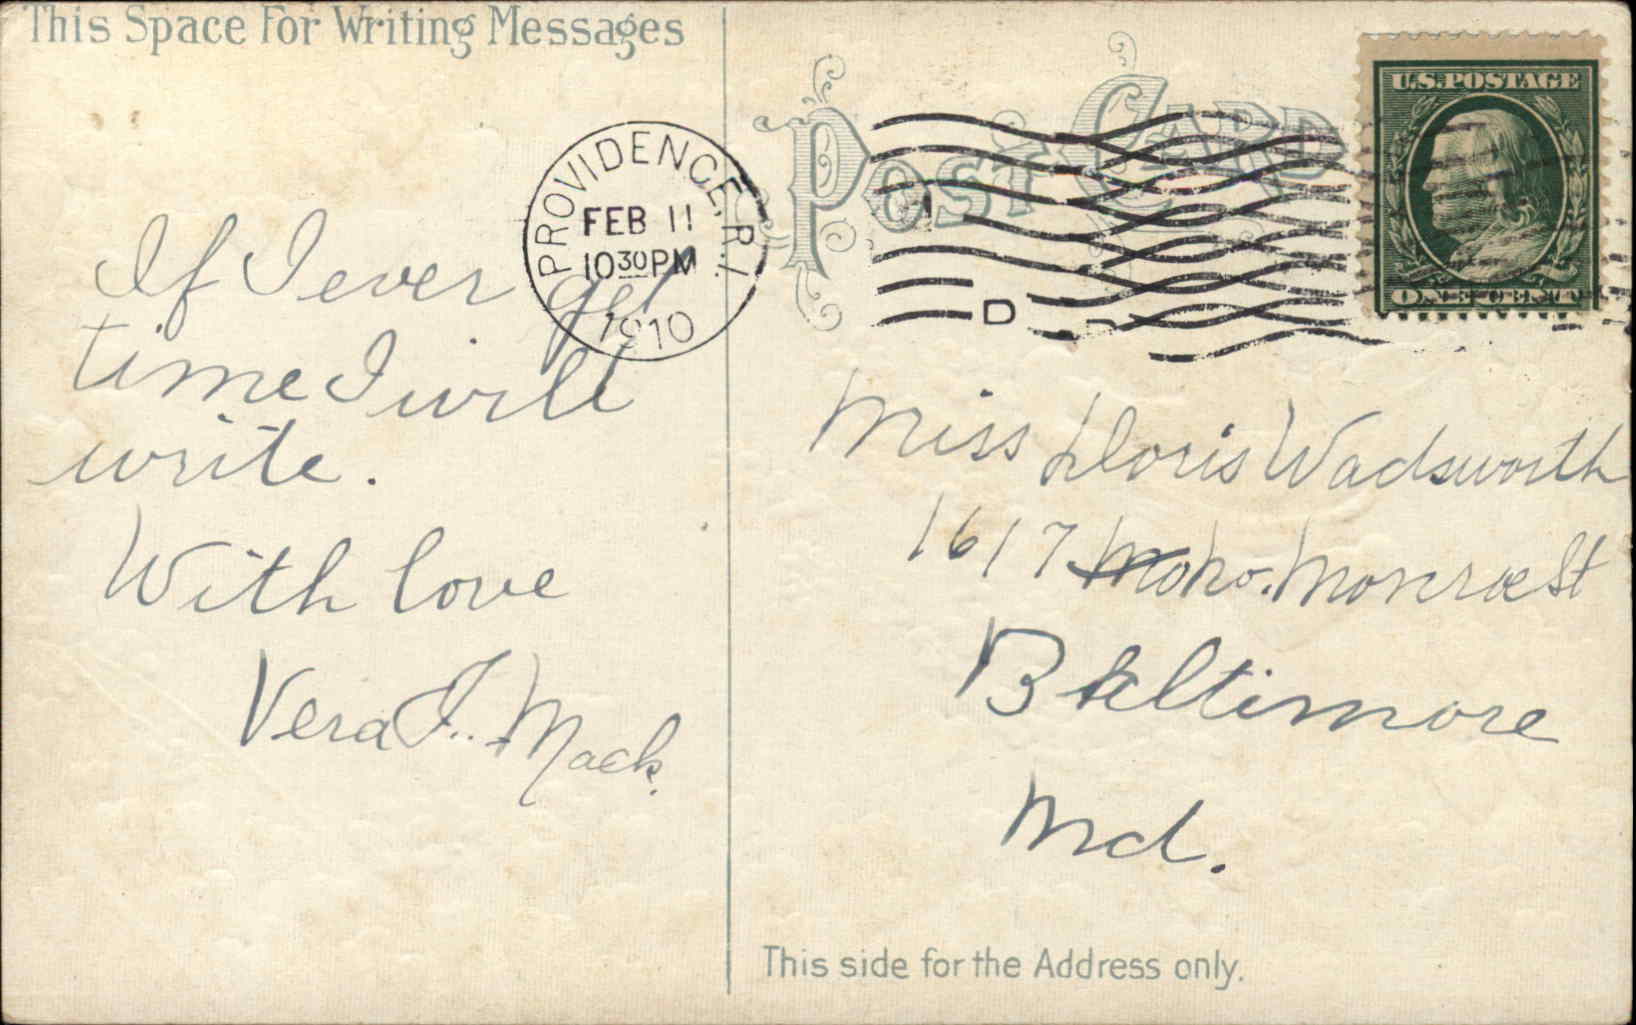 This Space For Writing Messages
POST CARD
U.S. POSTAGE
ONE CENT
PROVIDENCE, R.I.
FEB 11
10 30 PM
1910
D
If I ever get
time I will
write.
With love
Vera I. Mack.
Miss Doris Wadsworth
1617 No. Monroe St
Baltimore
Md.
This side for the Address only.